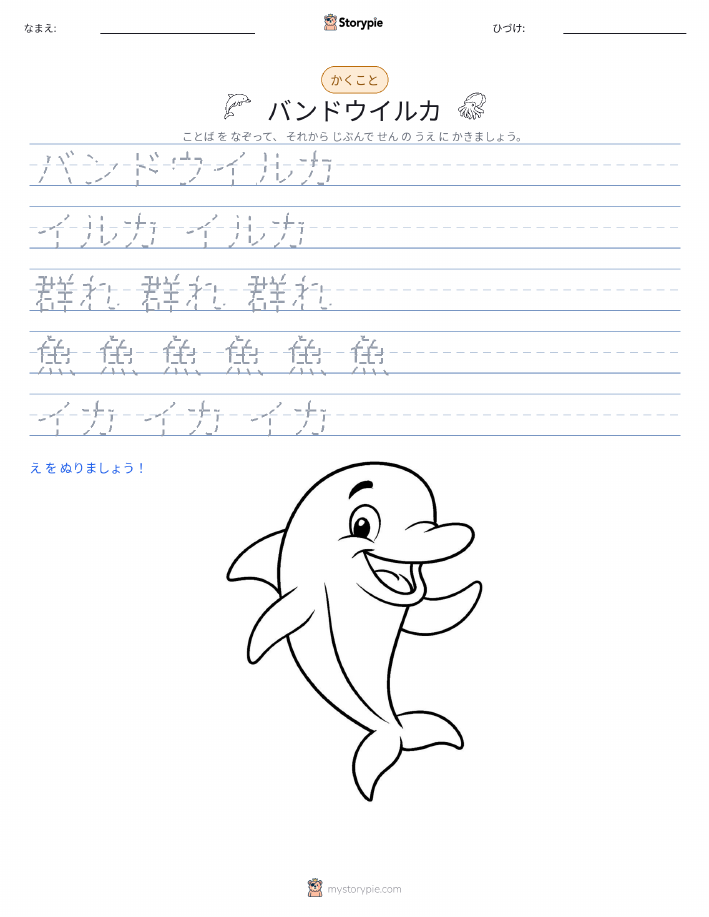 なまえ:
Storypie
ひづけ:
かくこと
バンドウイルカ
ことば を なぞって、 それから じぶんで せん の うえ に かきましょう。
バンドウイルカ
イルカ イルカ
群れ 群れ 群れ
魚 魚 魚 魚 魚 魚
イカ イカ イカ
え を ぬりましょう！
mystorypie.com